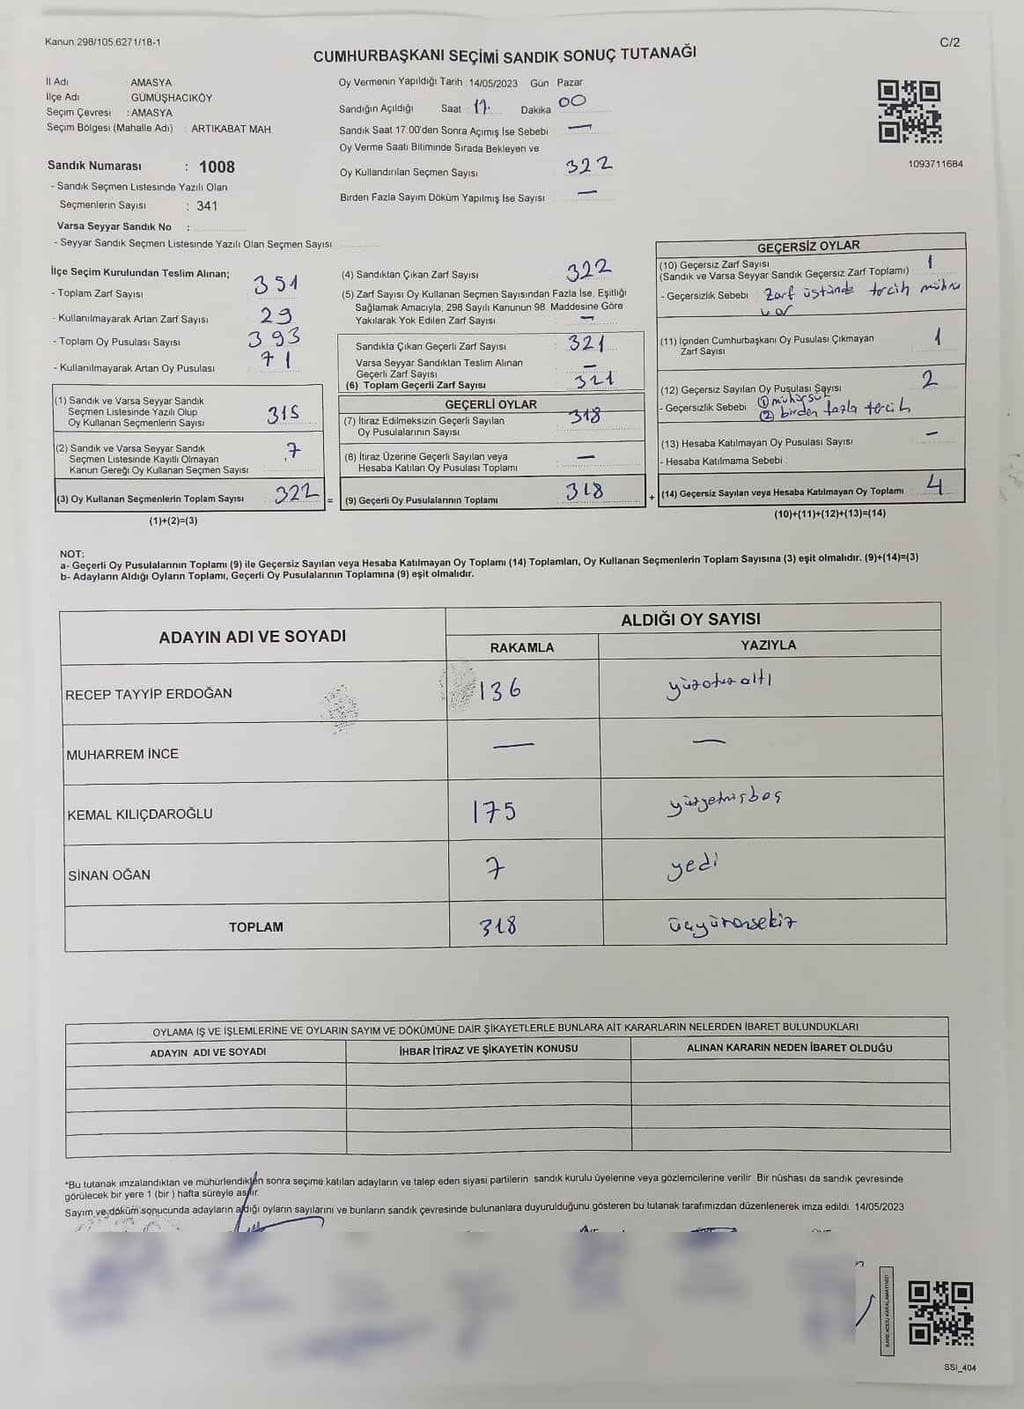 Kanun 298/105 6271/18-1
C/2
CUMHURBAŞKANI SEÇİMİ SANDIK SONUÇ TUTANAĞI
İl Adı AMASYA
İlçe Adı GÜMÜŞHACIKÖY
Seçim Çevresi : AMASYA
Seçim Bölgesi (Mahalle Adı) ARTIKABAT MAH
Sandık Numarası : 1008
- Sandık Seçmen Listesinde Yazılı Olan
Seçmenlerin Sayısı : 341
Varsa Seyyar Sandık No :
- Seyyar Sandık Seçmen Listesinde Yazılı Olan Seçmen Sayısı
Oy Vermenin Yapıldığı Tarih 14/05/2023 Gün Pazar
Sandığın Açıldığı Saat 17. Dakika 00
Sandık Saat 17:00'den Sonra Açımış İse Sebebi —
Oy Verme Saati Bitiminde Sırada Bekleyen ve
Oy Kullandırılan Seçmen Sayısı 322
Birden Fazla Sayım Döküm Yapılmış İse Sayısı —
1093711684
İlçe Seçim Kurulundan Teslim Alınan;
- Toplam Zarf Sayısı 351
- Kullanılmayarak Artan Zarf Sayısı 29
- Toplam Oy Pusulası Sayısı 393
- Kullanılmayarak Artan Oy Pusulası 71
(1) Sandık ve Varsa Seyyar Sandık
Seçmen Listesinde Yazılı Olup
Oy Kullanan Seçmenlerin Sayısı 315
(2) Sandık ve Varsa Seyyar Sandık
Seçmen Listesinde Kayıtlı Olmayan
Kanun Gereği Oy Kullanan Seçmen Sayısı 7
(3) Oy Kullanan Seçmenlerin Toplam Sayısı 322 =
(1)+(2)=(3)
(4) Sandıktan Çıkan Zarf Sayısı 322
(5) Zarf Sayısı Oy Kullanan Seçmen Sayısından Fazla İse, Eşitliği
Sağlamak Amacıyla, 298 Sayılı Kanunun 98. Maddesine Göre
Yakılarak Yok Edilen Zarf Sayısı —
Sandıkta Çıkan Geçerli Zarf Sayısı 321
Varsa Seyyar Sandıktan Teslim Alınan
Geçerli Zarf Sayısı —
(6) Toplam Geçerli Zarf Sayısı 321
GEÇERLİ OYLAR
(7) İtiraz Edilmeksizin Geçerli Sayılan
Oy Pusulalarının Sayısı 318
(8) İtiraz Üzerine Geçerli Sayılan veya
Hesaba Katılan Oy Pusulası Toplamı —
(9) Geçerli Oy Pusulalarının Toplamı 318 +
GEÇERSİZ OYLAR
(10) Geçersiz Zarf Sayısı 1
(Sandık ve Varsa Seyyar Sandık Geçersiz Zarf Toplamı)
- Geçersizlik Sebebi Zarf üstünde tercih mührü
var
(11) İçinden Cumhurbaşkanı Oy Pusulası Çıkmayan
Zarf Sayısı 1
(12) Geçersiz Sayılan Oy Pusulası Sayısı 2
- Geçersizlik Sebebi ① mühürsüz
② birden fazla tercih
(13) Hesaba Katılmayan Oy Pusulası Sayısı —
- Hesaba Katılmama Sebebi :
(14) Geçersiz Sayılan veya Hesaba Katılmayan Oy Toplamı 4
(10)+(11)+(12)+(13)=(14)
NOT:
a- Geçerli Oy Pusulalarının Toplamı (9) ile Geçersiz Sayılan veya Hesaba Katılmayan Oy Toplamı (14) Toplamları, Oy Kullanan Seçmenlerin Toplam Sayısına (3) eşit olmalıdır. (9)+(14)=(3)
b- Adayların Aldığı Oyların Toplamı, Geçerli Oy Pusulalarının Toplamına (9) eşit olmalıdır.
ADAYIN ADI VE SOYADI
ALDIĞI OY SAYISI
RAKAMLA YAZIYLA
RECEP TAYYİP ERDOĞAN 136 yüzotuzaltı
MUHARREM İNCE — —
KEMAL KILIÇDAROĞLU 175 yüzyetmişbeş
SİNAN OĞAN 7 yedi
TOPLAM 318 üçyüzonsekiz
OYLAMA İŞ VE İŞLEMLERİNE VE OYLARIN SAYIM VE DÖKÜMÜNE DAİR ŞİKAYETLERLE BUNLARA AİT KARARLARIN NELERDEN İBARET BULUNDUKLARI
ADAYIN ADI VE SOYADI İHBAR İTİRAZ VE ŞİKAYETİN KONUSU ALINAN KARARIN NEDEN İBARET OLDUĞU
*Bu tutanak imzalandıktan ve mühürlendikten sonra seçime katılan adayların ve talep eden siyasi partilerin sandık kurulu üyelerine veya gözlemcilerine verilir. Bir nüshası da sandık çevresinde
görülecek bir yere 1 (bir) hafta süreyle asılır
Sayım ve döküm sonucunda adayların aldığı oyların sayılarını ve bunların sandık çevresinde bulunanlara duyurulduğunu gösteren bu tutanak tarafımızdan düzenlenerek imza edildi. 14/05/2023
SSI_404